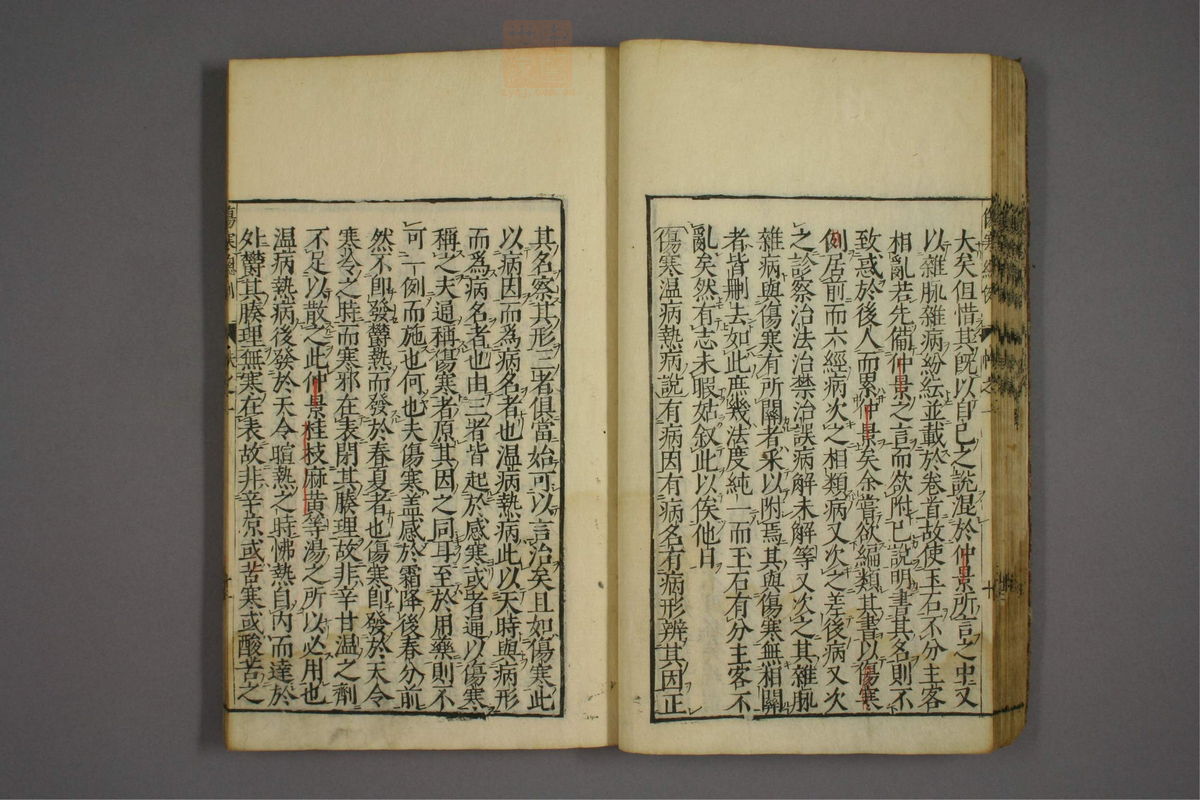 大矣但惜其既以自己之說混於仲景所言之中又
以雜脉雜病紛紜並載於卷首故使玉石不分主客
相亂若先備仲景之言而欲附己說明書其名則不
致惑於後人而累仲景矣余嘗欲編類其書以傷寒
例居前而六經病次之相類病又次之差後病又次
之診察治法治禁治誤病解未解等又次之其雜脉
雜病與傷寒有所關者采以附焉其與傷寒無相關
者皆刪去如此庶幾法度純一而玉石有分主客不
亂矣然有志未暇姑叙此以俟他日
傷寒温病熱病說有病因有病名有病形辨其因正
其名察其形三者俱當始可以言治矣且如傷寒此
以病因而爲病名者也温病熱病此以天時與病形
而爲病名者也由三者皆起於感寒或者通以傷寒
稱之夫通稱傷寒者原其因之同耳至於用藥則不
可一例而施也何也夫傷寒盖感於霜降後春分前
然不即發鬱熱而發於春夏者也傷寒即發於天令
寒冷之時而寒邪在表閉其腠理故非辛甘温之劑
不足以散之此仲景桂枝麻黄等湯之所以必用也
温病熱病後發於天令暄熱之時怫熱自內而達於
外鬱其腠理無寒在表故非辛凉或苦寒或酸苦之